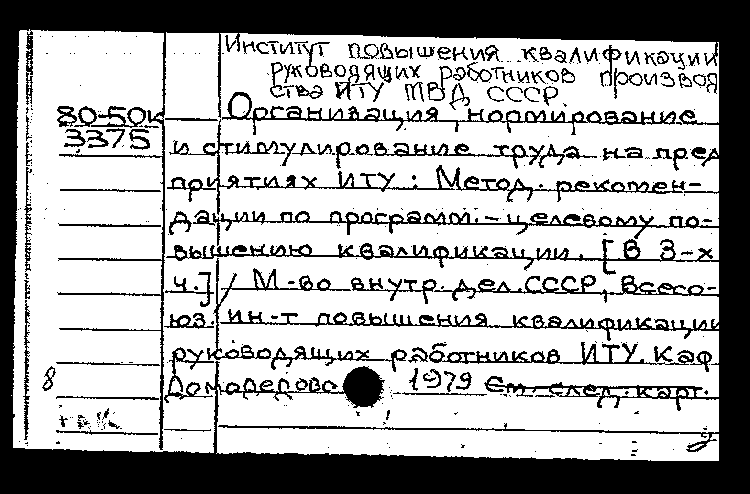 Институт повышения квалификации
руководящих работников производ
ства ИТУ МВД СССР.
80-50к
3375
Организация, нормирование
и стимулирование труда на пред
приятиях ИТУ: Метод. рекомен-
дации по программ.-целевому по-
вышению квалификации. [В 3-х
ч.] / М-во внутр. дел СССР, Всесо-
юз. ин-т повышения квалификации
руководящих работников ИТУ. Каф
8
Домодедово 1979 См. след. карт.